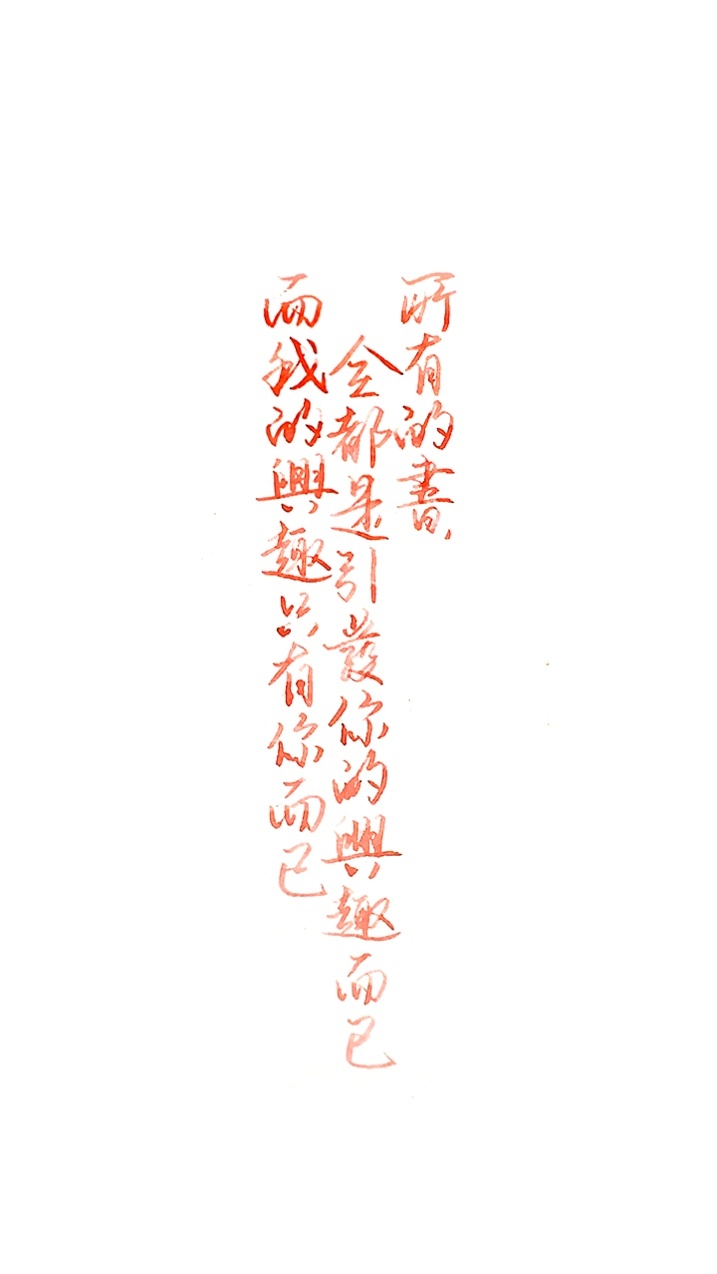 所有的書，
全都是引發你的興趣而已
而我的興趣只有你而已